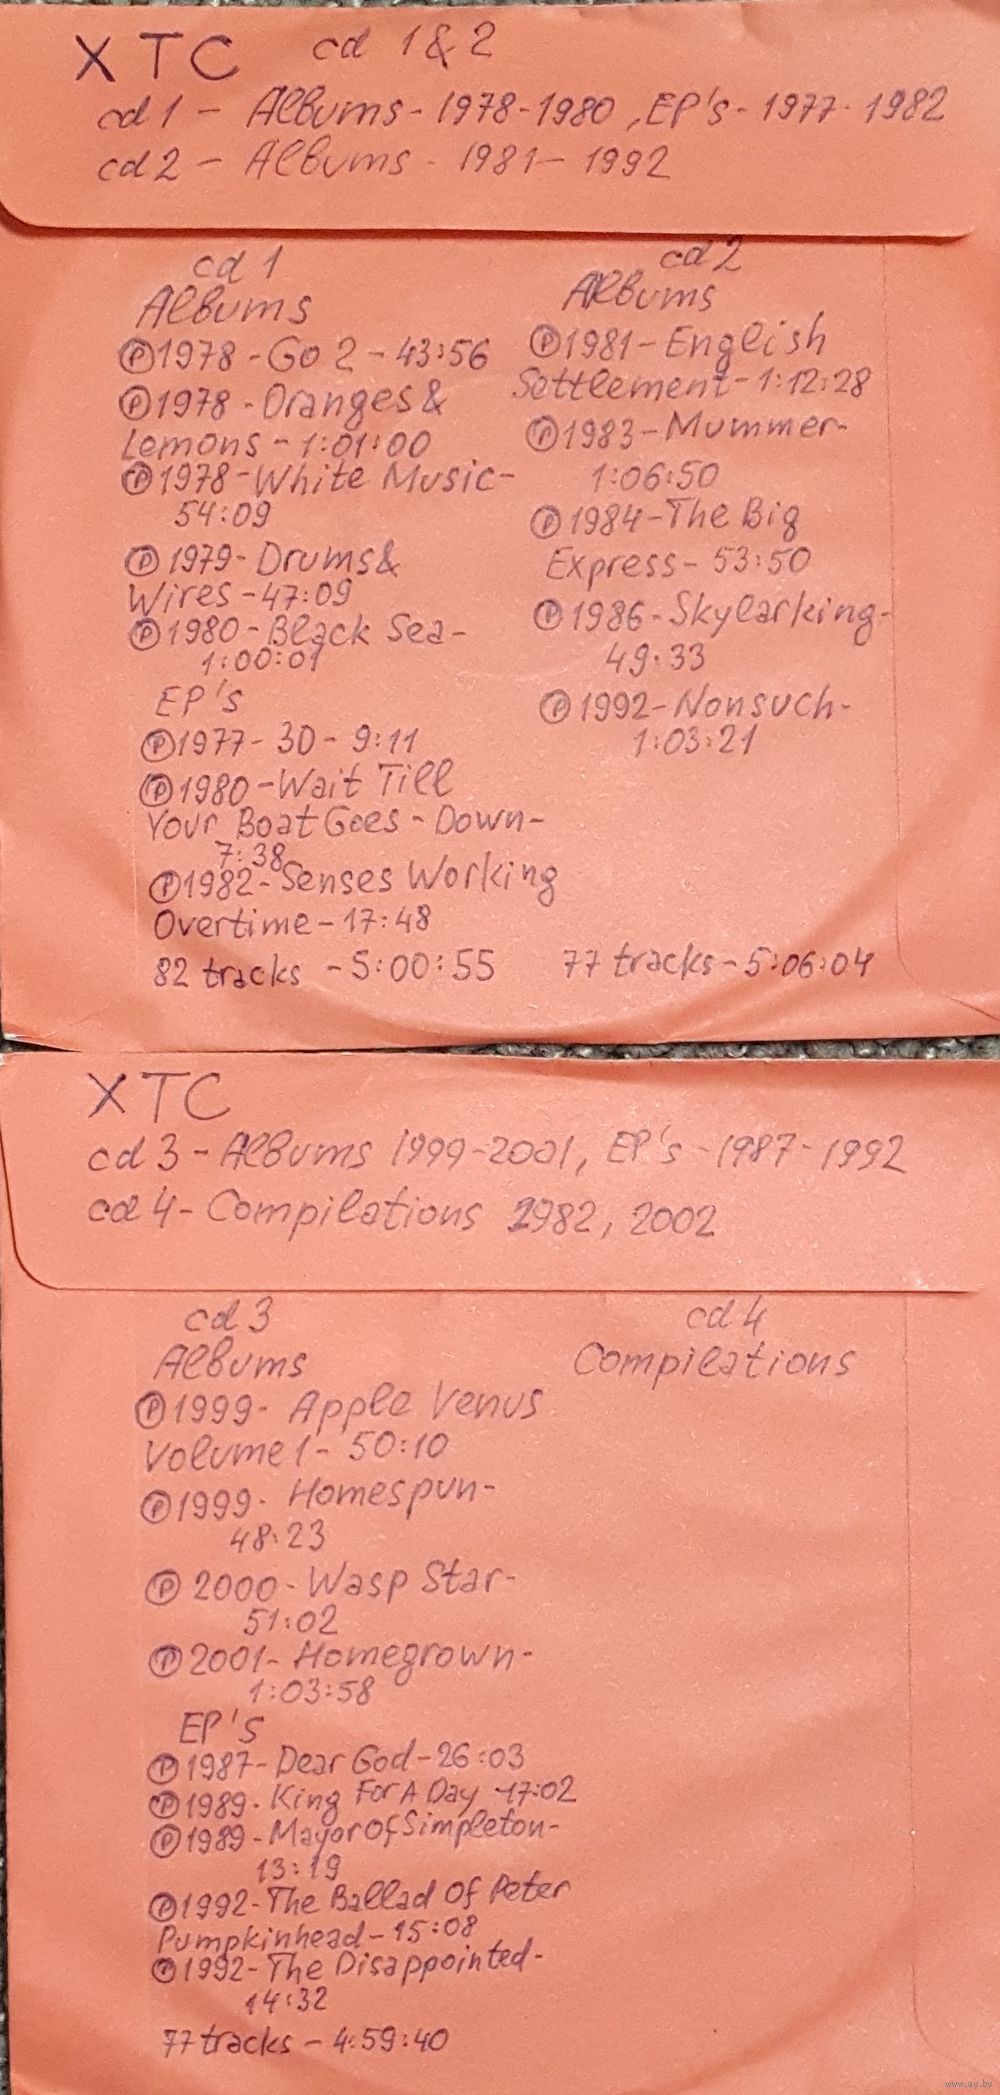 XTC cd 1 & 2
cd 1 - Albums - 1978-1980, EP's - 1977-1982
cd 2 - Albums - 1981 - 1992
cd 1
Albums
Ⓟ1978 - Go 2 - 43:56
Ⓟ1978 - Oranges &
Lemons - 1:01:00
Ⓟ1978 - White Music -
54:09
Ⓟ1979 - Drums &
Wires - 47:09
Ⓟ1980 - Black Sea -
1:00:01
EP's
Ⓟ1977 - 3D - 9:11
Ⓟ1980 - Wait Till
Your Boat Goes - Down -
7:38
Ⓟ1982 - Senses Working
Overtime - 17:48
82 tracks - 5:00:55
cd 2
Albums
Ⓟ1981 - English
Settlement - 1:12:28
Ⓟ1983 - Mummer -
1:06:50
Ⓟ1984 - The Big
Express - 53:50
Ⓟ1986 - Skylarking -
49:33
Ⓟ1992 - Nonsuch -
1:03:21
77 tracks - 5:06:04
XTC
cd 3 - Albums 1999-2001, EP's - 1987-1992
cd 4 - Compilations 1982, 2002
cd 3
Albums
Ⓟ1999 - Apple Venus
Volume 1 - 50:10
Ⓟ1999 - Homespun -
48:23
Ⓟ2000 - Wasp Star -
51:02
Ⓟ2001 - Homegrown -
1:03:58
EP's
Ⓟ1987 - Dear God - 26:03
Ⓟ1989 - King For A Day - 17:02
Ⓟ1989 - Mayor Of Simpleton -
13:19
Ⓟ1992 - The Ballad Of Peter
Pumpkinhead - 15:08
Ⓟ1992 - The Disappointed -
14:32
77 tracks - 4:59:40
cd 4
Compilations
www.ay.by